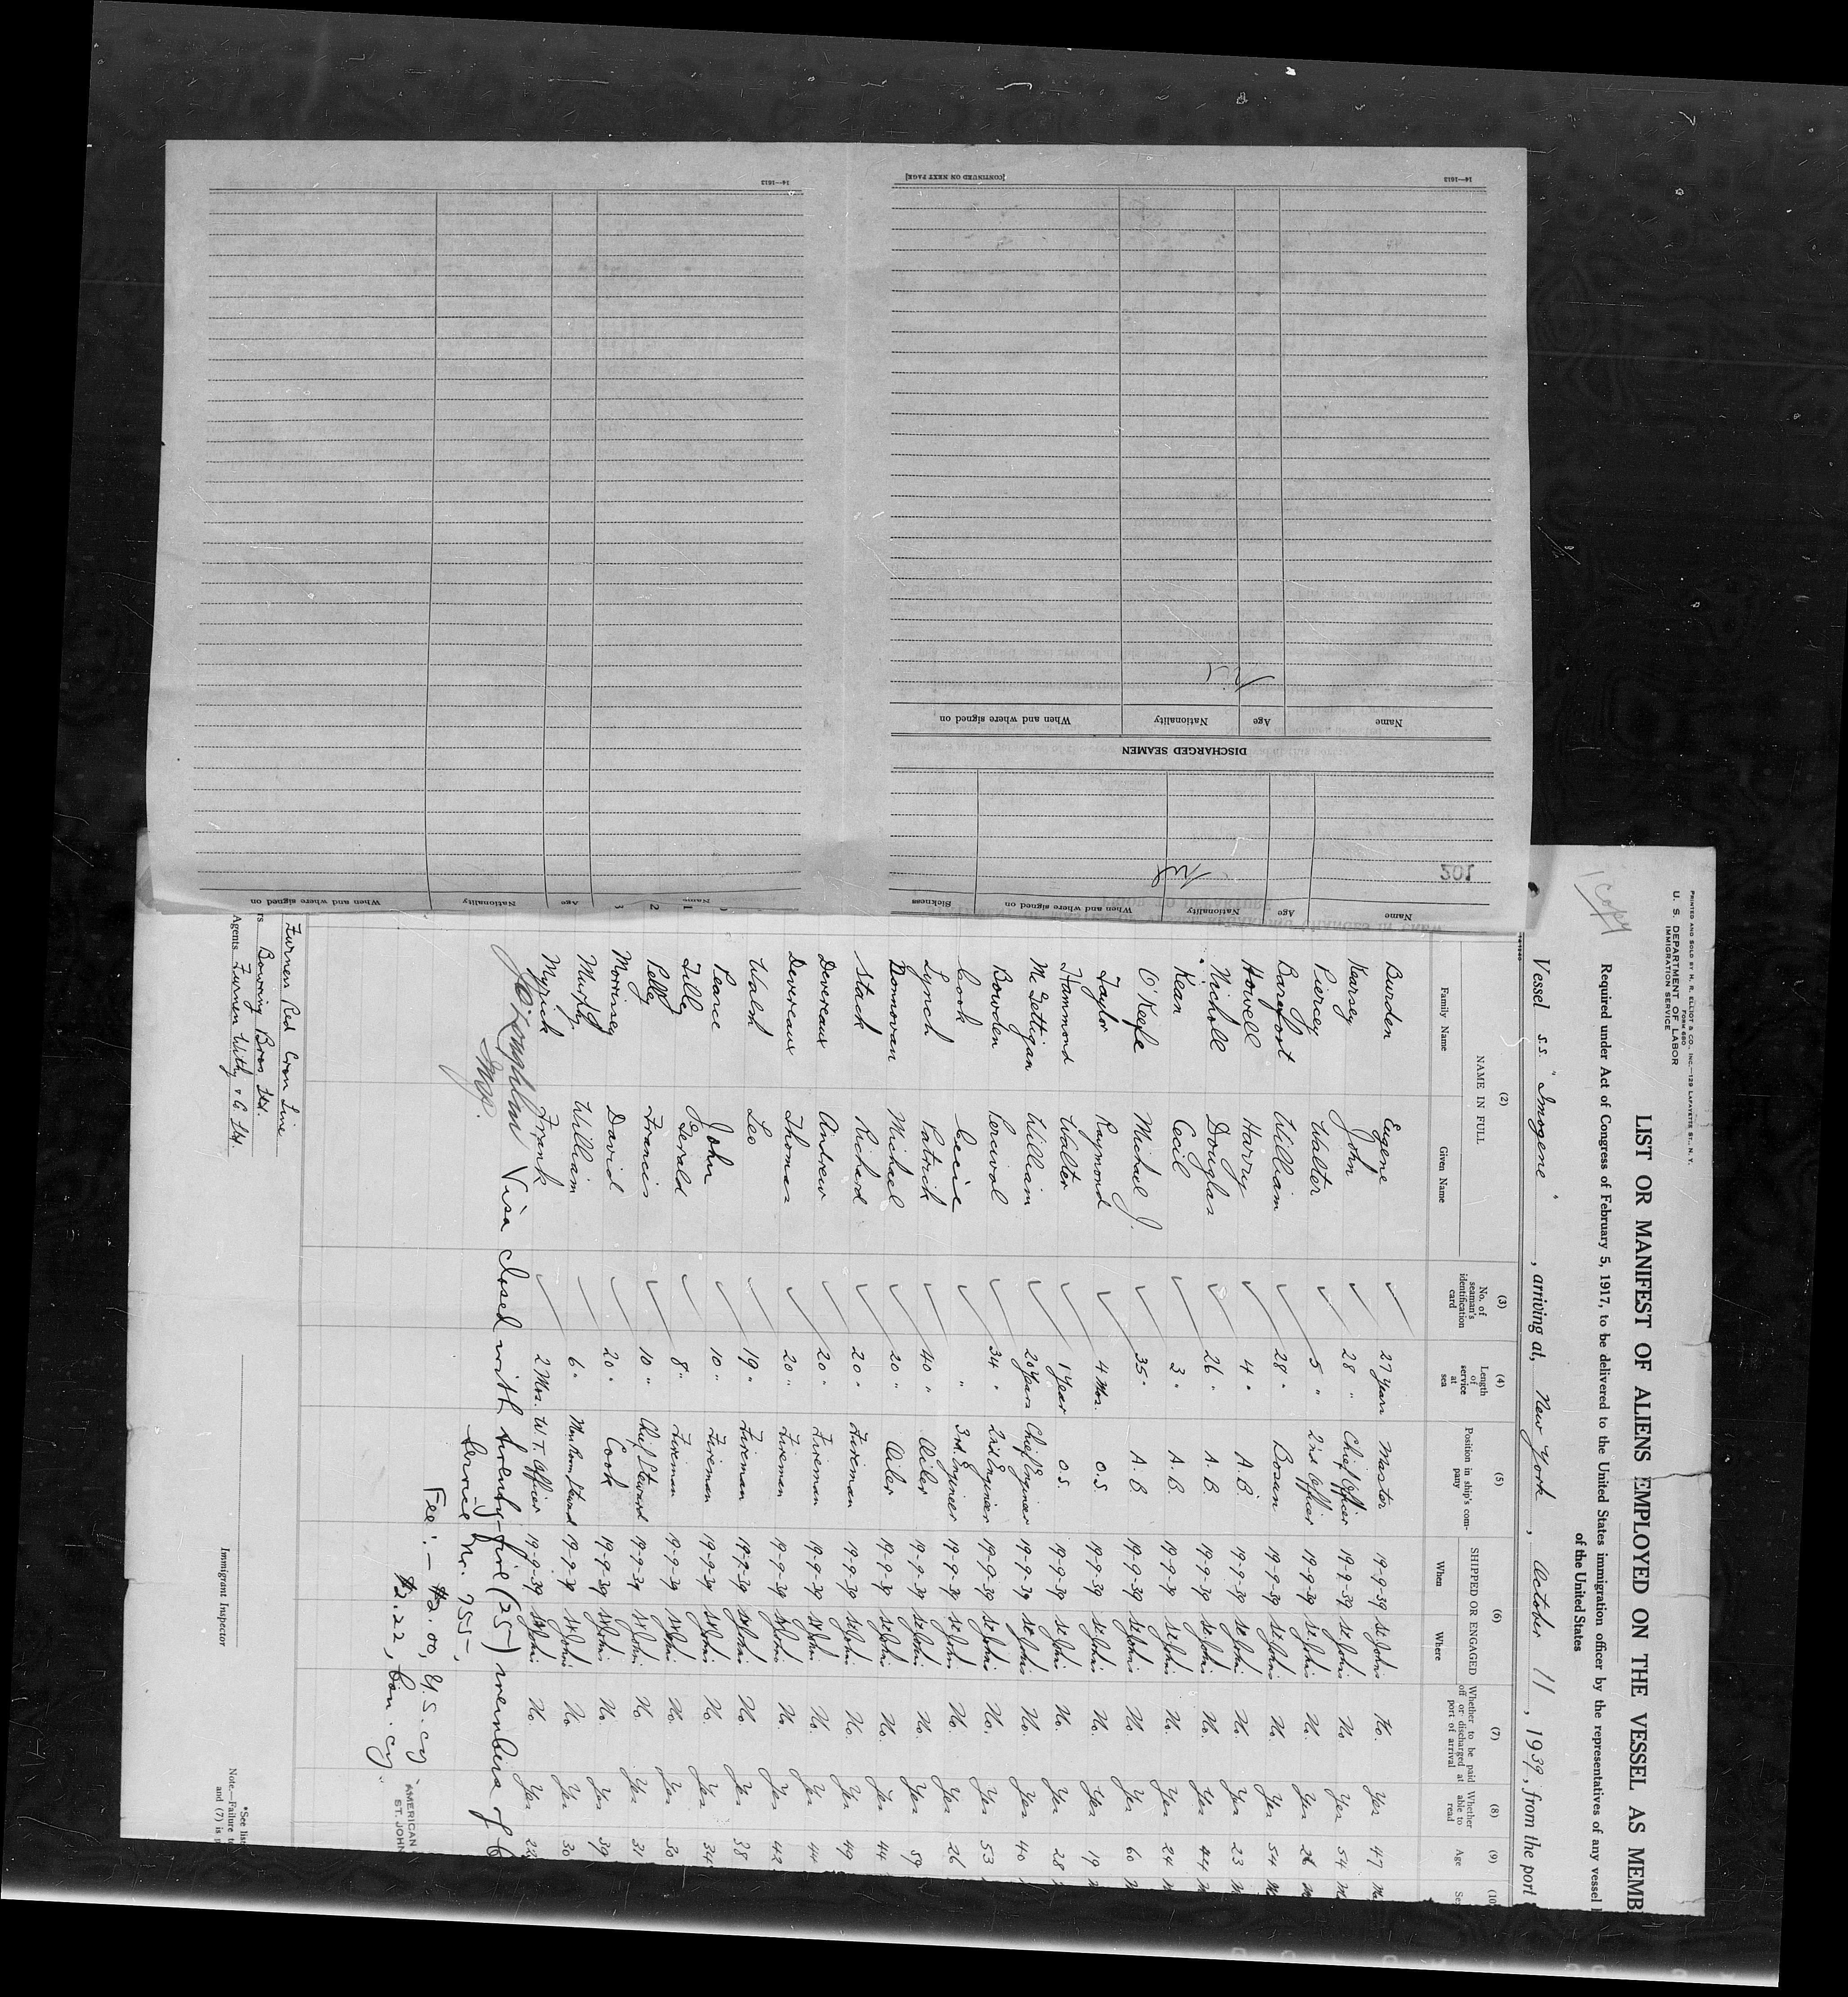 PRINTED AND SOLD BY H. R. ELLIOT & CO., INC.—129 LAFAYETTE ST., N. Y.
FORM 680
U. S. DEPARTMENT OF LABOR
IMMIGRATION SERVICE
1 copy
LIST OR MANIFEST OF ALIENS EMPLOYED ON THE VESSEL AS MEMB
Required under Act of Congress of February 5, 1917, to be delivered to the United States immigration officer by the representatives of any vessel
of the United States
Vessel s.s. "Imogene", arriving at, New York, October 11, 1939, from the port
(2) (3) (4) (5) (6) (7) (8) (9) (10
NAME IN FULL No. of seaman's identification card Length of service at sea Position in ship's company SHIPPED OR ENGAGED Whether to be paid off or discharged at port of arrival Whether able to read Age Se
Family Name Given Name When Where
Burden Eugene 27 years Master 19-9-39 St Johns No. Yes 47
Kearsey John 28 " Chief Officer 19-9-39 St Johns No Yes 54
Piercey Walter 5 " 2nd Officer 19-9-39 St Johns No. Yes 26
Barefoot William 28 " Bosun 19-9-39 St Johns No. Yes 54
Howell Harry 4 " A.B. 19-9-39 St Johns No. Yes 23
Nicholl Douglas 26 " A.B 19-9-39 St Johns No. Yes 44
Kean Cecil 3 " A.B. 19-9-39 St Johns No. Yes 24
O'Keefe Michael J. 35 " A.B 19-9-39 St Johns No Yes 60
Taylor Raymond 4 Mos. O.S. 19-9-39 St Johns No. Yes 19
Hammond Walter 1 Year O.S. 19-9-39 St Johns No. Yes 28
McGettigan William 20 Years Chief Engineer 19-9-39 St Johns No. Yes 40
Bowden Percival 34 " 2nd Engineer 19-9-39 St Johns No. Yes 53
Cook " 3rd. Engineer 19-9-39 St Johns No. Yes 26
Lynch Patrick 40 " Oiler 19-9-39 St Johns No. Yes 59
Donnovan Michael 20 " Oiler 19-9-39 St Johns No. Yes 44
Stack Richard 20 " Fireman 19-9-39 St Johns No. Yes 49
Devereaux Andrew 20 " Fireman 19-9-39 St Johns No. Yes 44
Devereaux Thomas 20 " Fireman 19-9-39 St Johns No. Yes 42
Walsh Leo 19 " Fireman 19-9-39 St Johns No. Yes 38
Pearce John 10 " Fireman 19-9-39 St Johns No. Yes 34
Tilley Gerald 8 " Fireman 19-9-39 St Johns No. Yes 30
Pelley Francis 10 " Chief Steward 19-9-39 St Johns No. Yes 31
Morrissey David 20 " Cook 19-9-39 St Johns No. Yes 39
Murphy William 6 " Mess Room Steward 19-9-39 St Johns No Yes 30
Myrick Frank 2 Mos. W.T. Officer 19-9-39 St Johns No Yes 22
Visa closed with twenty-five (25) members of
Service No. 755-,
Fee:- $2.00, U.S. cy
$2.22, Can. cy.
AMERICAN
ST. JOHN
Furness Red Cross Line
Bowring Bros Ltd.
Agents Furness Withy & Co Ltd.
Immigrant Inspector
*See list
Note.—Failure to
and (7) is
201
Name Age Nationality When and where signed on Sickness
Nil
DISCHARGED SEAMEN
Name Age Nationality When and where signed on
Nil
14—1613
[CONTINUED ON NEXT PAGE]
Name Age Nationality When and where signed on
14—1613